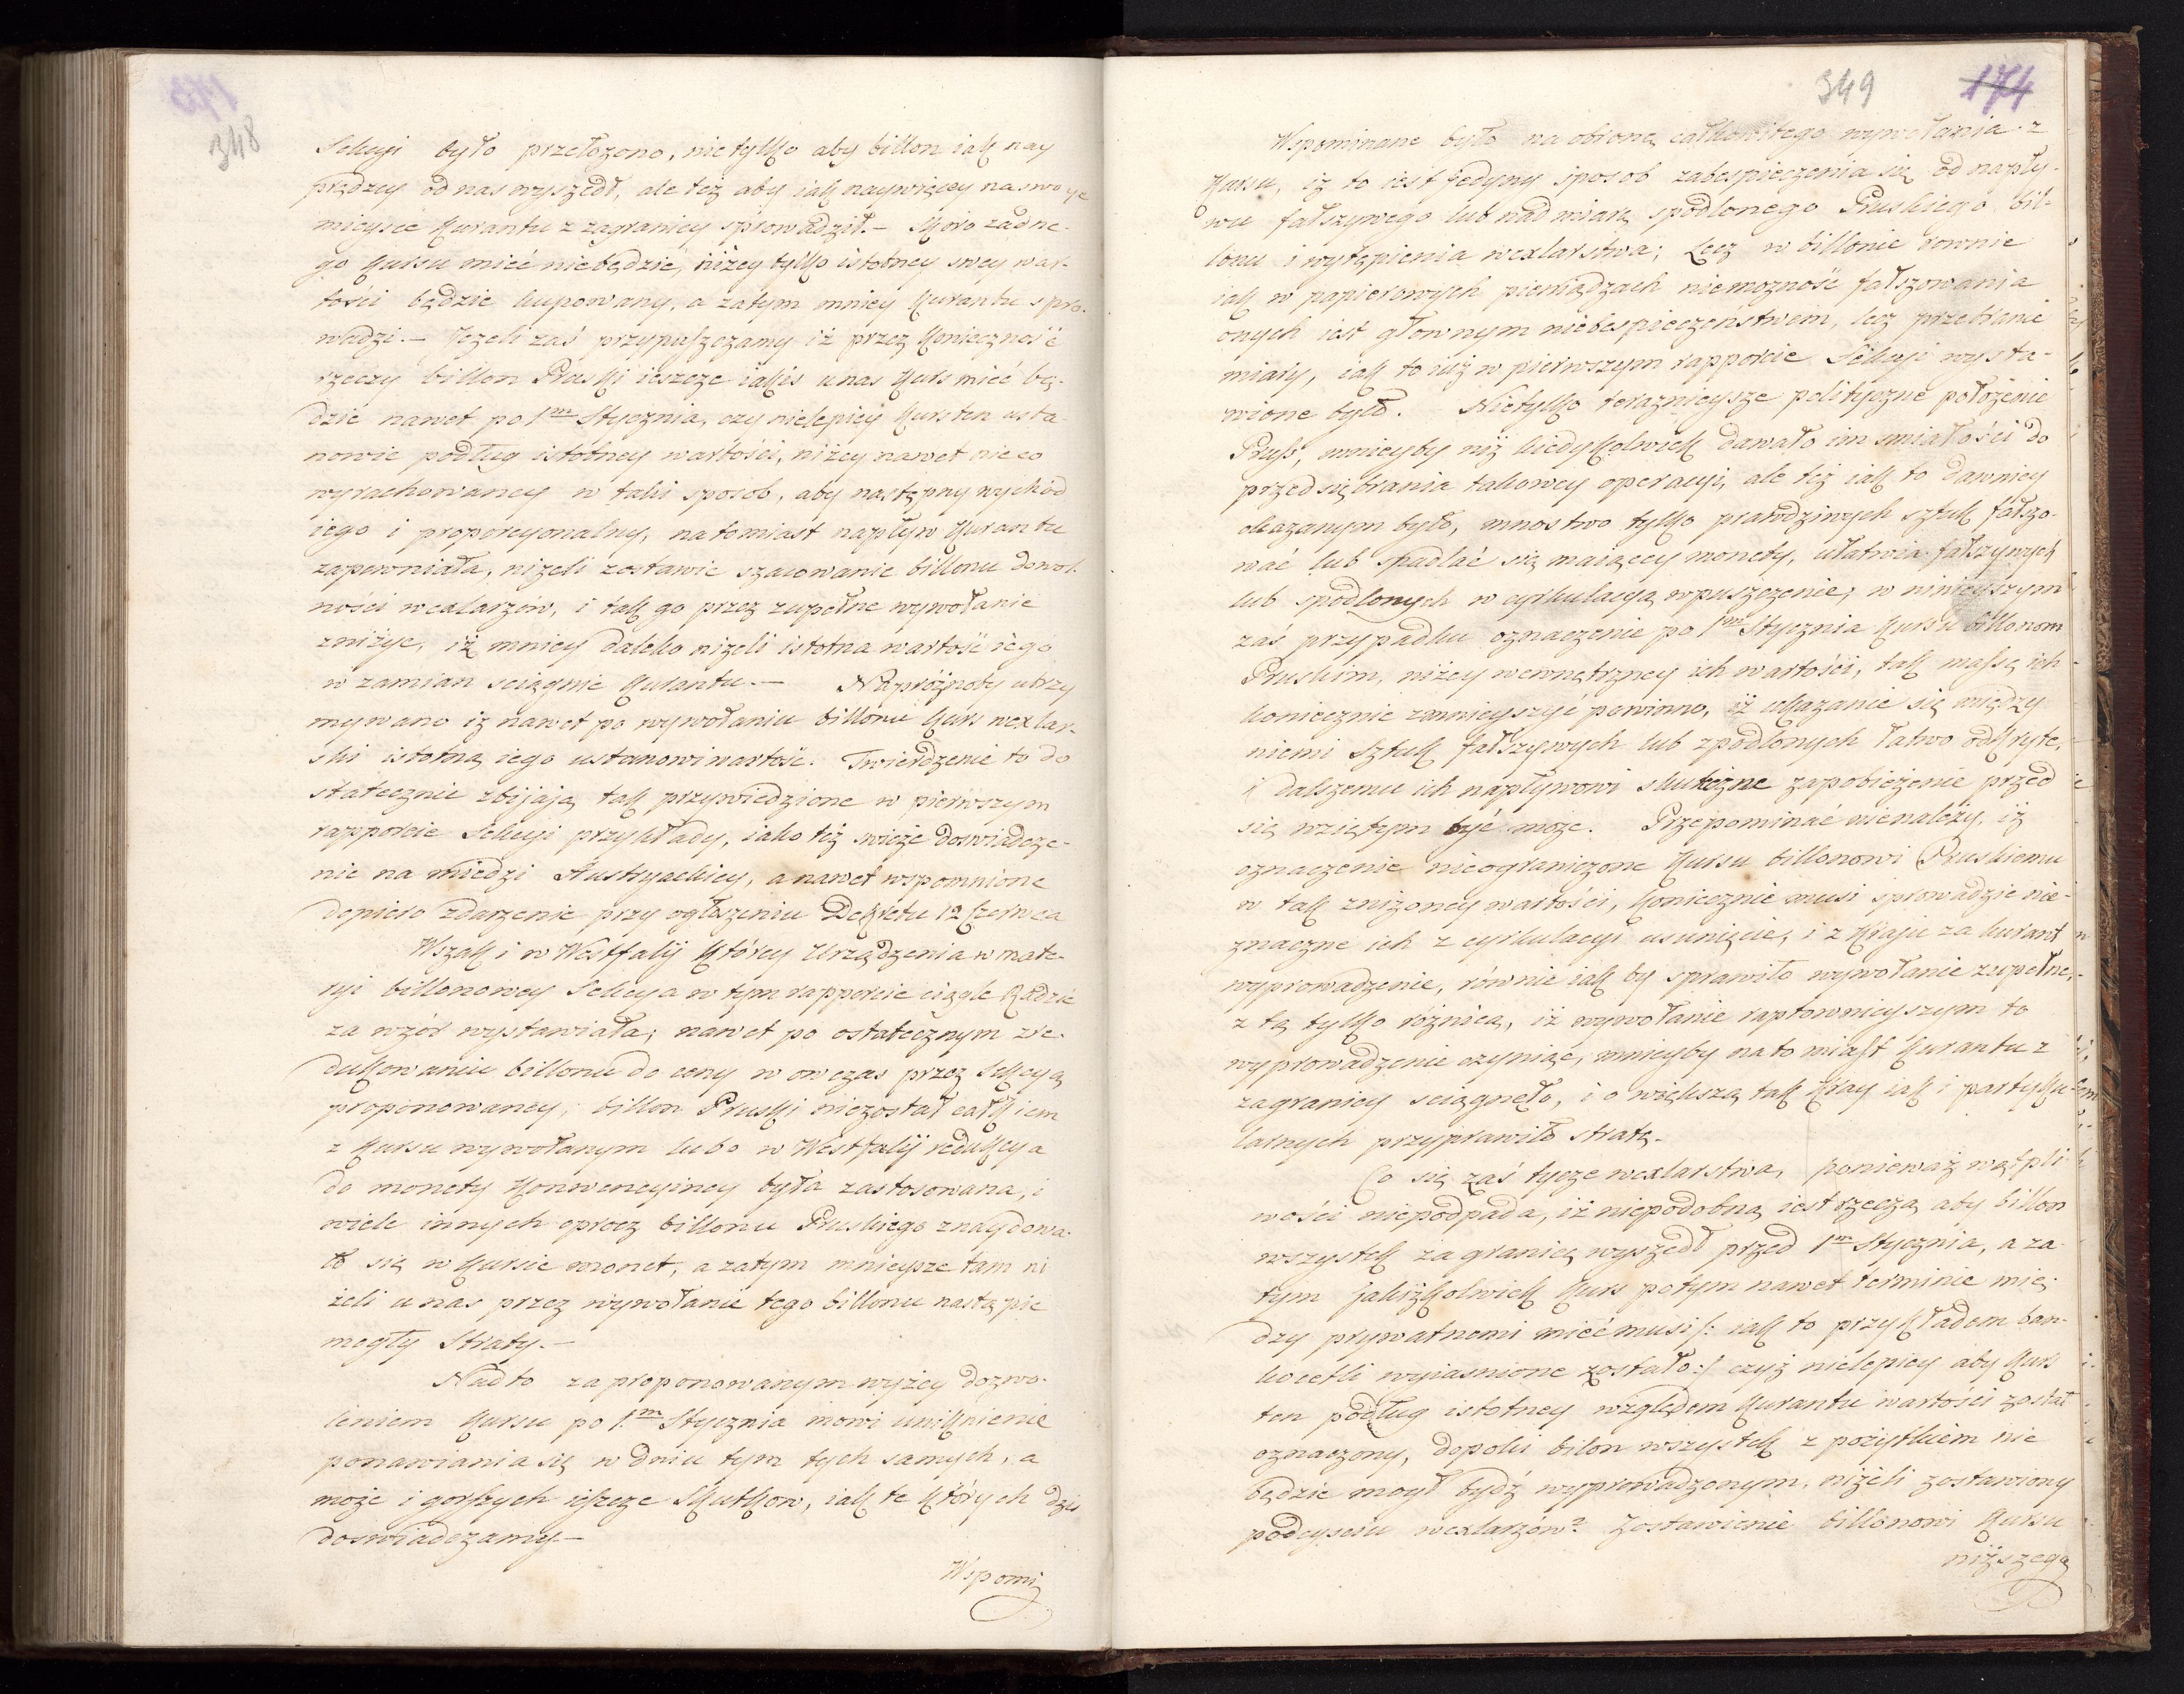 348
Sekcyi było przełożono, nietylko aby billon iak nay
prędzey od nas wyszedł, ale też aby iak naywięcey na swoye
mieysce Kurantu z zagranicy sprowadził. – Skoro żadne-
go Kursu mieć niebędzie, niżey tylko istotney swey war-
tości będzie kupowany, a zatym mniey Kurantu spro-
wadzi. – Jeżeli zaś przypuszczamy iż przez Konieczność
rzeczy billon Pruski ieszcze iakis u nas Kurs mieć bę-
dzie nawet po 1m Stycznia, czy nielepiey Kurs ten usta-
nowic podług istotney wartości, niżey nawet nieco
wyrachowaney w taki sposob, aby następny wychód
iego i proporcyonalny, natomiast napływ Kurantu
zapewniała, niżeli zostawic szacowanie billonu dowol-
ności wexlarzów, i tak go przez zupełne wywołanie
zniżyc, iż mniey daleko niżeli istotna wartość iego
w zamian sciągnie Kurantu. – Napróżnoby utrzy
mywano iż nawet po wywołaniu billonu Kurs wexlar-
ski istotną iego ustanowi wartość. Twierdzenie to do
statecznie zbijaią tak przywiedzione w pierwszym
rapporcie Sekcyi przykłady, iako też swieże doswiadcze-
nie na miedzi Austryackiey, a nawet wspomnione
dopiero zdarzenie przy ogłoszeniu Dekretu 12 Czerwca
Wszak i w Westfalij którey Urządzenia w mate-
ryi billonowey Sekcya w tym rapporcie ciągle Radzie
za wzór wystawiała; nawet po ostatecznym zre-
dukowaniu billonu do ceny w owczas przez Sekcyą
proponowaney, billon Pruski niezostał całkiem
z Kursu wywołanym lubo w Westfalij redukcya
do monety Konwencyiney była zastosowana, i
wiele innych oprocz billonu Pruskiego znaydowa-
ło się w Kursie monet, a zatym mnieysze tam ni
żeli u nas przez wywołanie tego billonu nastąpic
mogły Straty. –
Nadto za proponowanym wyżey dozwo-
leniem Kursu po 1.m Stycznia mowi uniknienie
ponawiania się w dniu tym tych samych, a
może i gorszych ieszcze Skutkow, iak te których dziś
doswiadczamy –
Wspomi
349 174
Wspominane było na obronę całkowitego wywołania z
Kursu, iż to iest jedyny sposob zabespieczenia się od napły-
wu fałszywego lub nad miarę spodlonego Pruskiego bil-
lonu i wytępienia wexlarstwa; Lecz w billonie rownie
iak w papierowych pieniądzach niemożność fałszowania
onych iest głownym niebespieczeństwem, lecz przebranie
miary, iak to iuż w pierwszym rapporcie Sekcyi wysta-
wione było. Nietylko terażnieysze polityczne położenie
Pruss, mnieyby niż kiedykolwiek dawało im smiałości do
przedsiębrania takowey operacyi, ale też iak to dawniey
okazanym było, mnostwo tylko prawdziwych sztuk fałszo-
wać lub spadlać się maiącey monety, ułatwia fałszywych
lub spodlonych w cyrkulacyą wpuszczenie; w ninieyszym
zaś przypadku oznaczenie po 1m Stycznia Kursu billonom
Pruskim, niżey wewnętrzney ich wartości, tak massę ich
koniecznie zmnieyszyć powinno, iż ukazanie się między
niemi Sztuk fałszywych lub zpodlonych łatwo odkryte,
i dalszemu ich napływowi skuteczne zapobieżenie przed
się wziętym być może. Przepominać nienależy, iż
oznaczenie nieograniczone Kursu billonowi Pruskiemu
w tak zniżoney wartości, koniecznie musi sprowadzic nie-
znaczne ich z cyrkulacyi usunięcie, i z Kraju za kurant
wyprowadzenie, równie iak by sprawiło wywołanie zupełne,
z tą tylko różnicą, iż wywołanie raptownieyszym to
wyprowadzenie czyniąc, mnieyby natomiast Kurantu z
zagranicy sciągneło, i o większą tak Kray iak i partyku-
larnych przyprawiło stratę. –
Co się zaś tycze wexlarstwa, ponieważ wątpli-
wości niepodpada, iż niepodobną iest rzeczą aby billon
wszystek za granicę wyszedł przed 1m Stycznia, a za
tym jakiżkolwiek Kurs po tym nawet terminie mię-
dzy prywatnemi mieć musi /: iak to przykładem ban-
kocetli wyiasnione zostało :/ czyż nielepiey aby Kurs
ten podług istotney względem Kurantu wartości został
oznaczony, dopoki bilon wszystek z pożytkiem nie
będzie mogł bydź wyprowadzonym, niżeli zostawiony
podcyseiu wexlarzów? Zostawienie billonowi Kursu
niższego